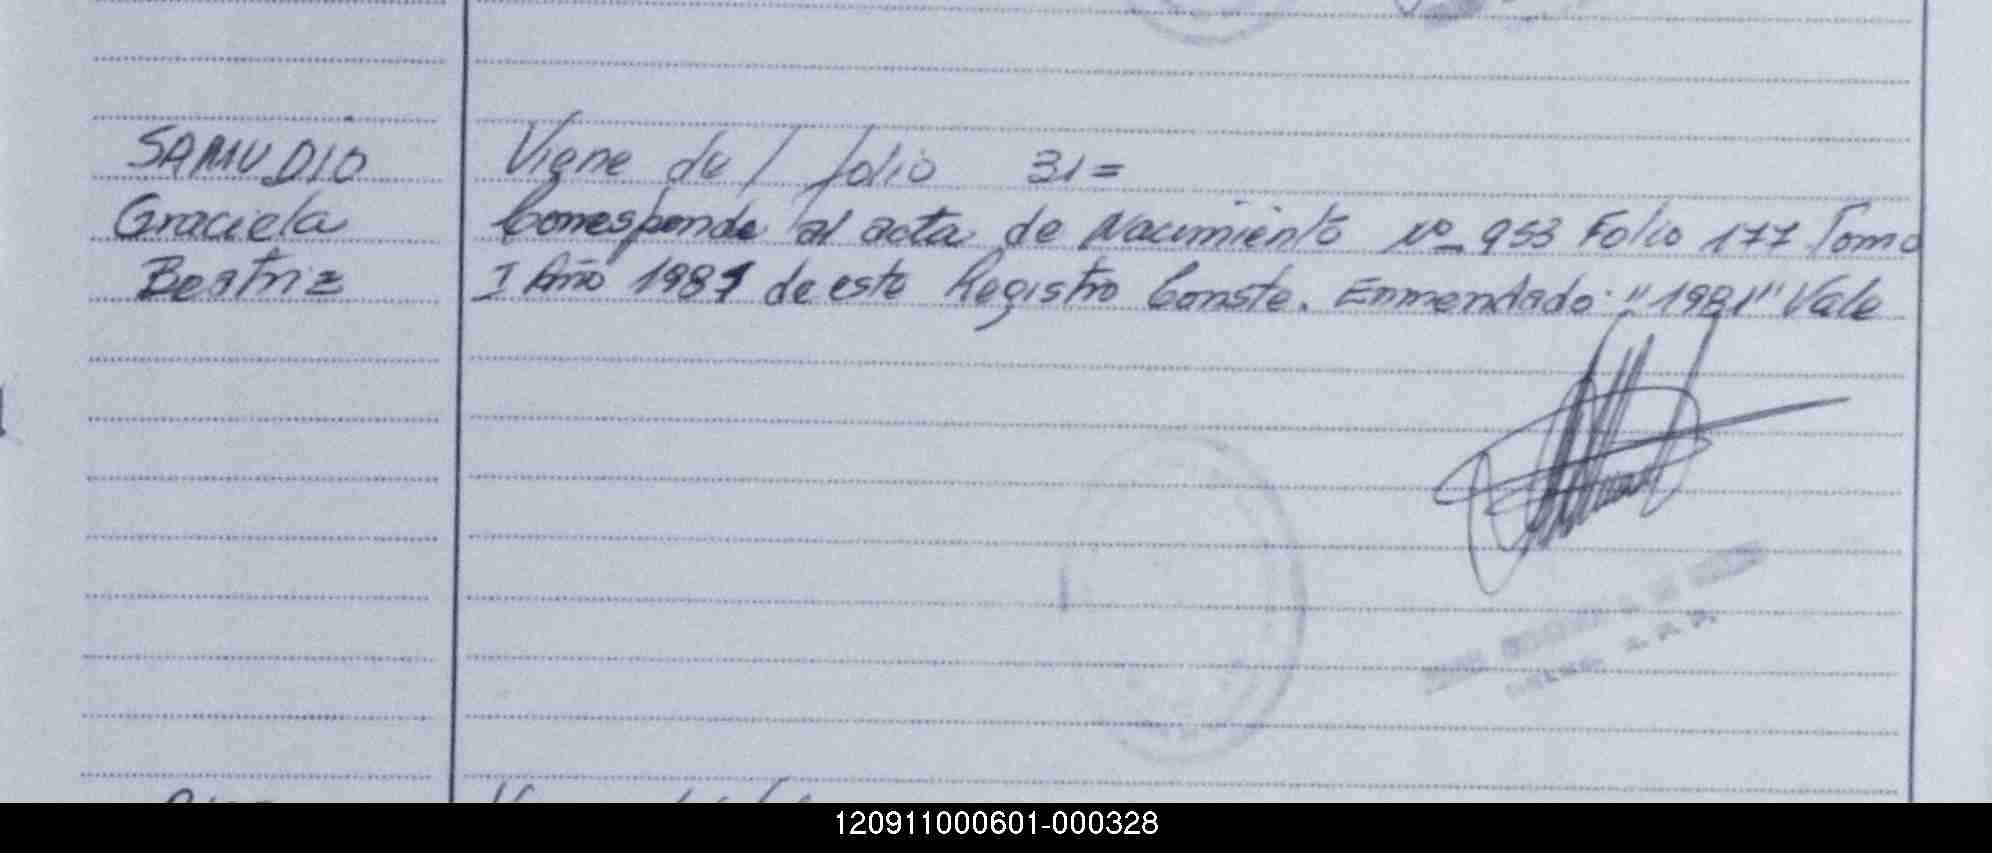 SAMUDIO Viene del folio 31=
Graciela Corresponde al acta de Nacimiento Nº 953 Folio 177 Tomo
Beatriz I Año 1981 de este Registro Conste. Enmendado: "1981" Vale
120911000601-000328